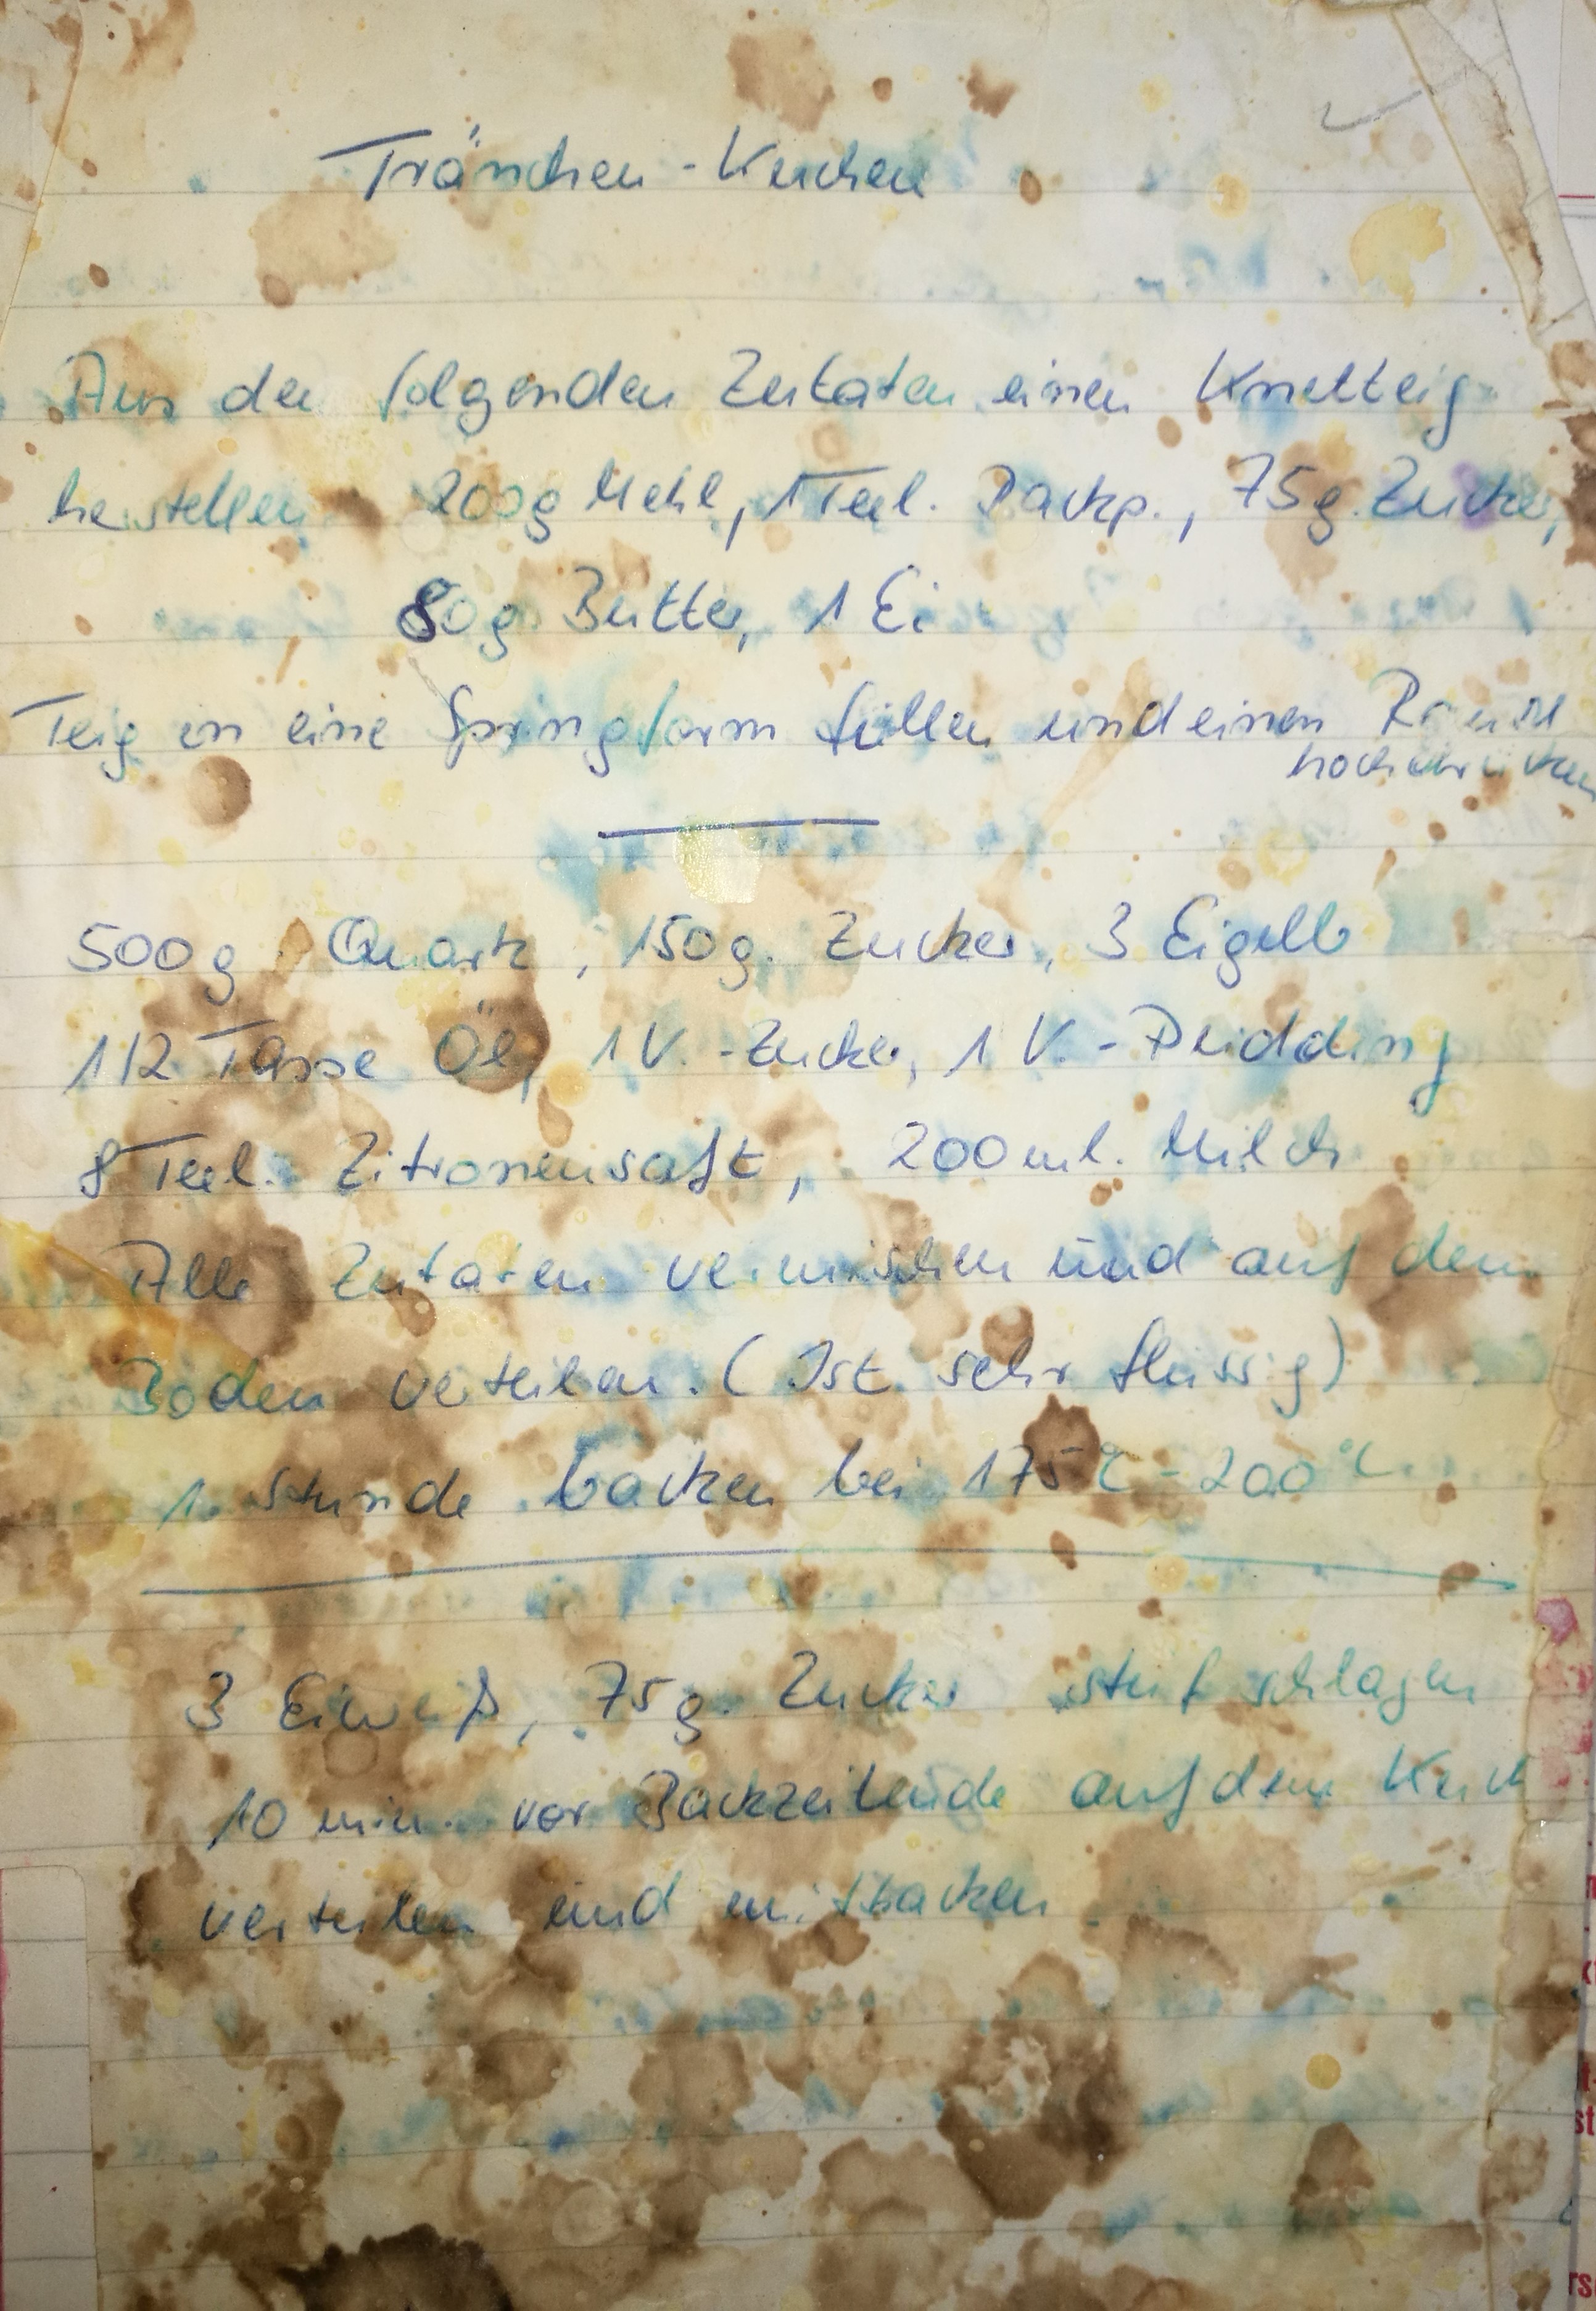 Tränchen-Kuchen
Aus den folgenden Zutaten einen Knetteig
herstellen 200g Mehl, 1 Teel. Backp., 75g Zucker,
80g Butter, 1 Ei
Teig in eine Springform füllen und einen Rand
hochdrücken
500g Quark, 150g. Zucker, 3 Eigelb
1/2 Tasse Öl, 1 V.-Zucker, 1 V.-Pudding
8 Teel. Zitronensaft, 200 ml. Milch
Alle Zutaten vermischen und auf dem
Boden verteilen. (Ist sehr flüssig)
1 Stunde backen bei 175°C - 200°C
3 Eiweiß, 75g. Zucker steif schlagen
10 min. vor Backzeitende auf dem Kuch
verteilen und mitbacken